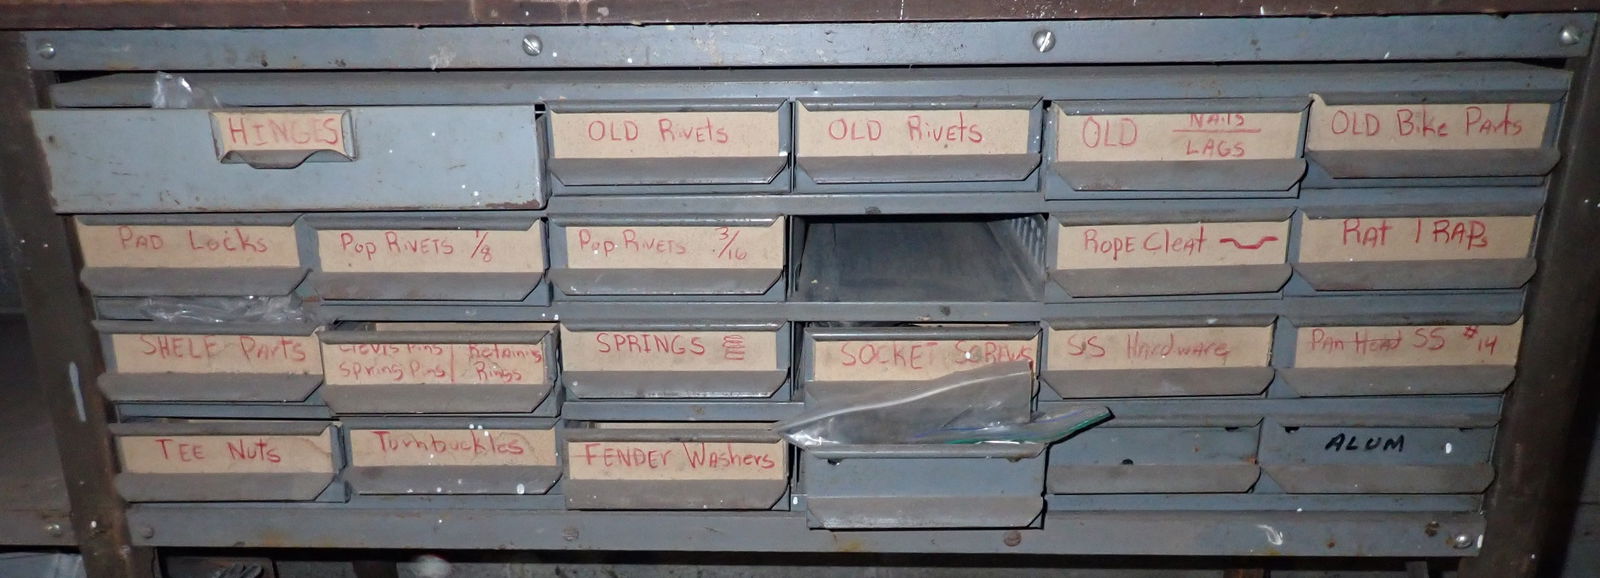 HINGES
OLD Rivets
OLD Rivets
OLD NAilS
LAGS
OLD Bike Parts
PAD Locks
Pop Rivets 1/8
Pop Rivets 3/16
ROPE Cleat
RAt TRAPs
SHELF Parts
Clevis Pins / Retaining
Spring Pins / Rings
SPRINGS
SOCKET SCREWS
SS Hardware
PAN Head SS #14
TEE Nuts
Turnbuckles
FENDER Washers
ALUM